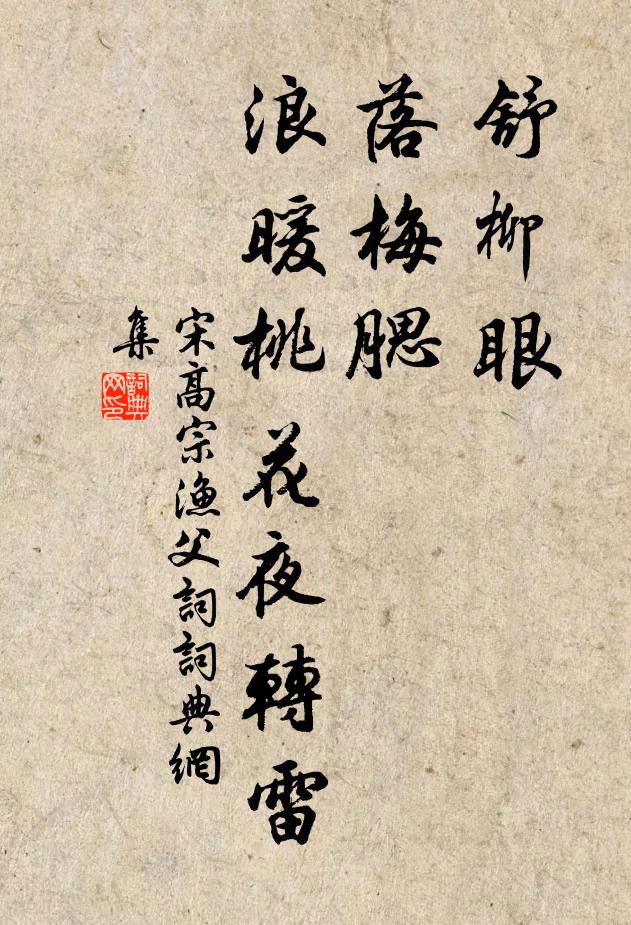 舒柳眼
落梅腮
浪暖桃花夜轉雷
宋高宗漁父詞詞典網
集
詞典网印